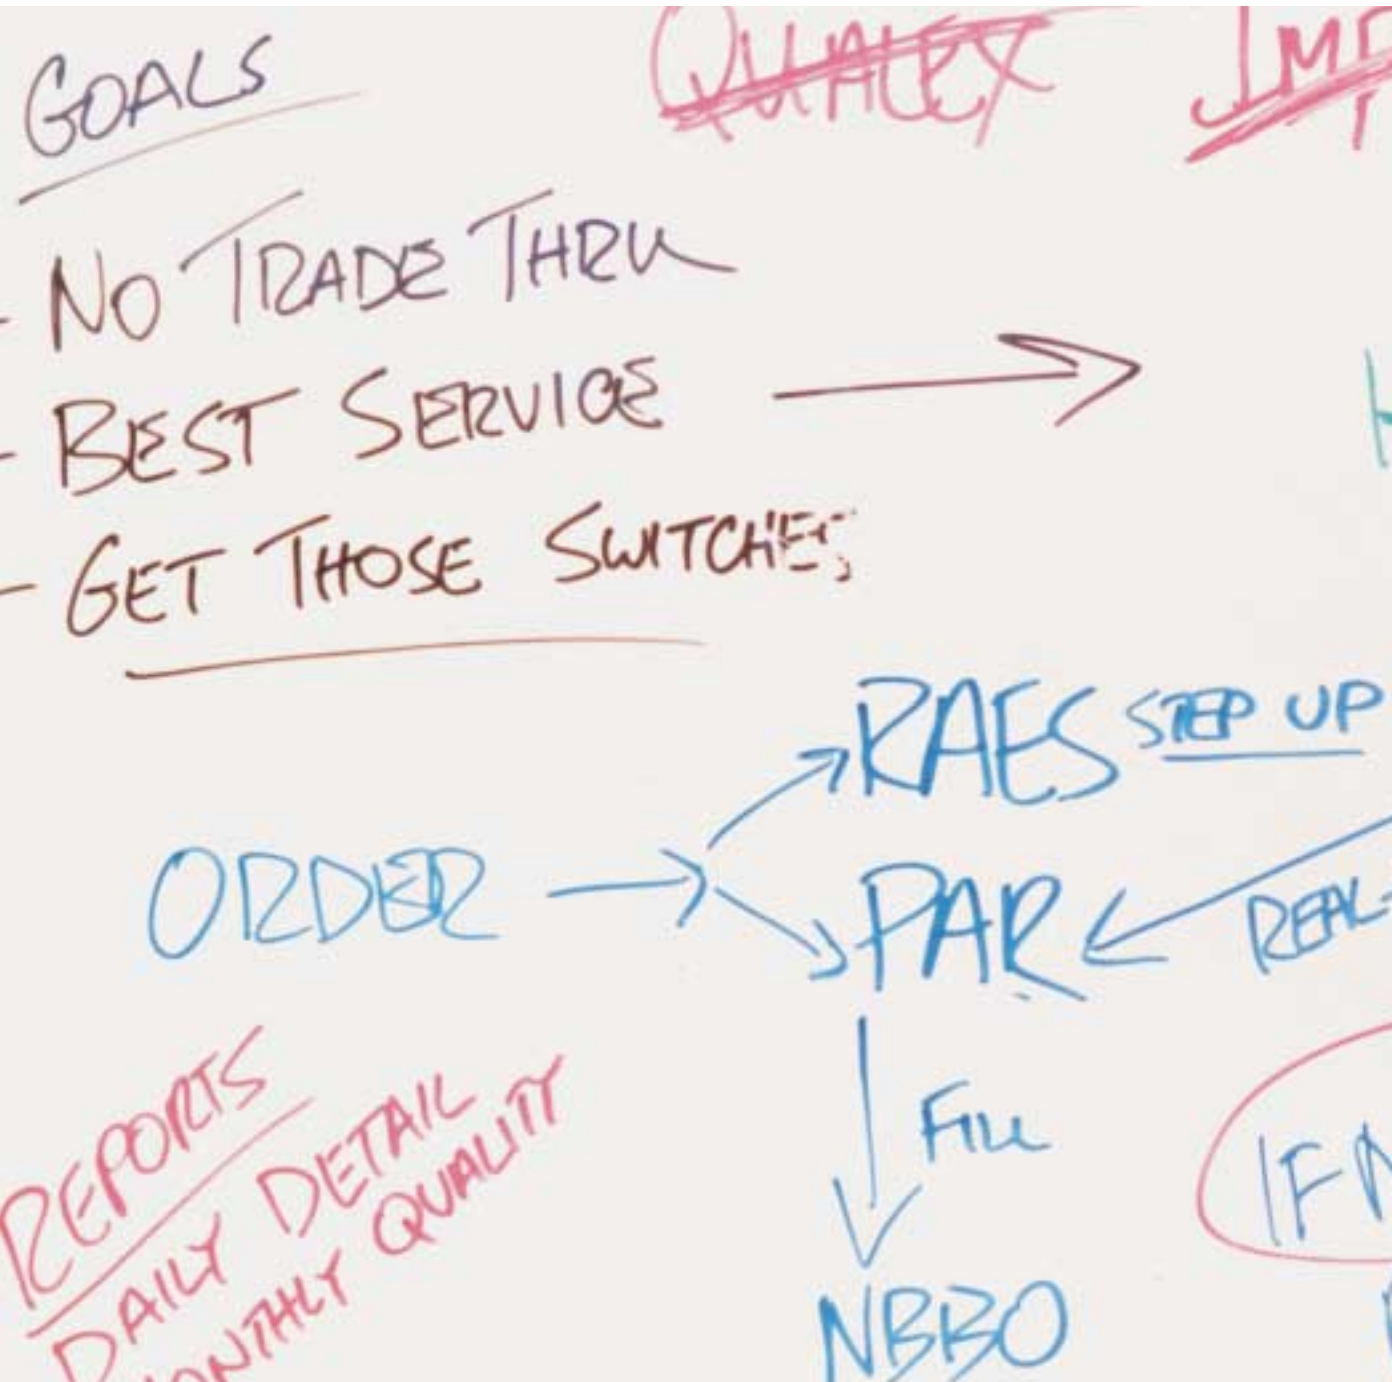 GOALS
QUALEX
- NO TRADE THRU
- BEST SERVICE
- GET THOSE SWITCHES
RAES STEP UP
ORDER
PAR
REAL-
FILL
IF
NBBO
REPORTS
DAILY DETAIL
MONTHLY QUALITY